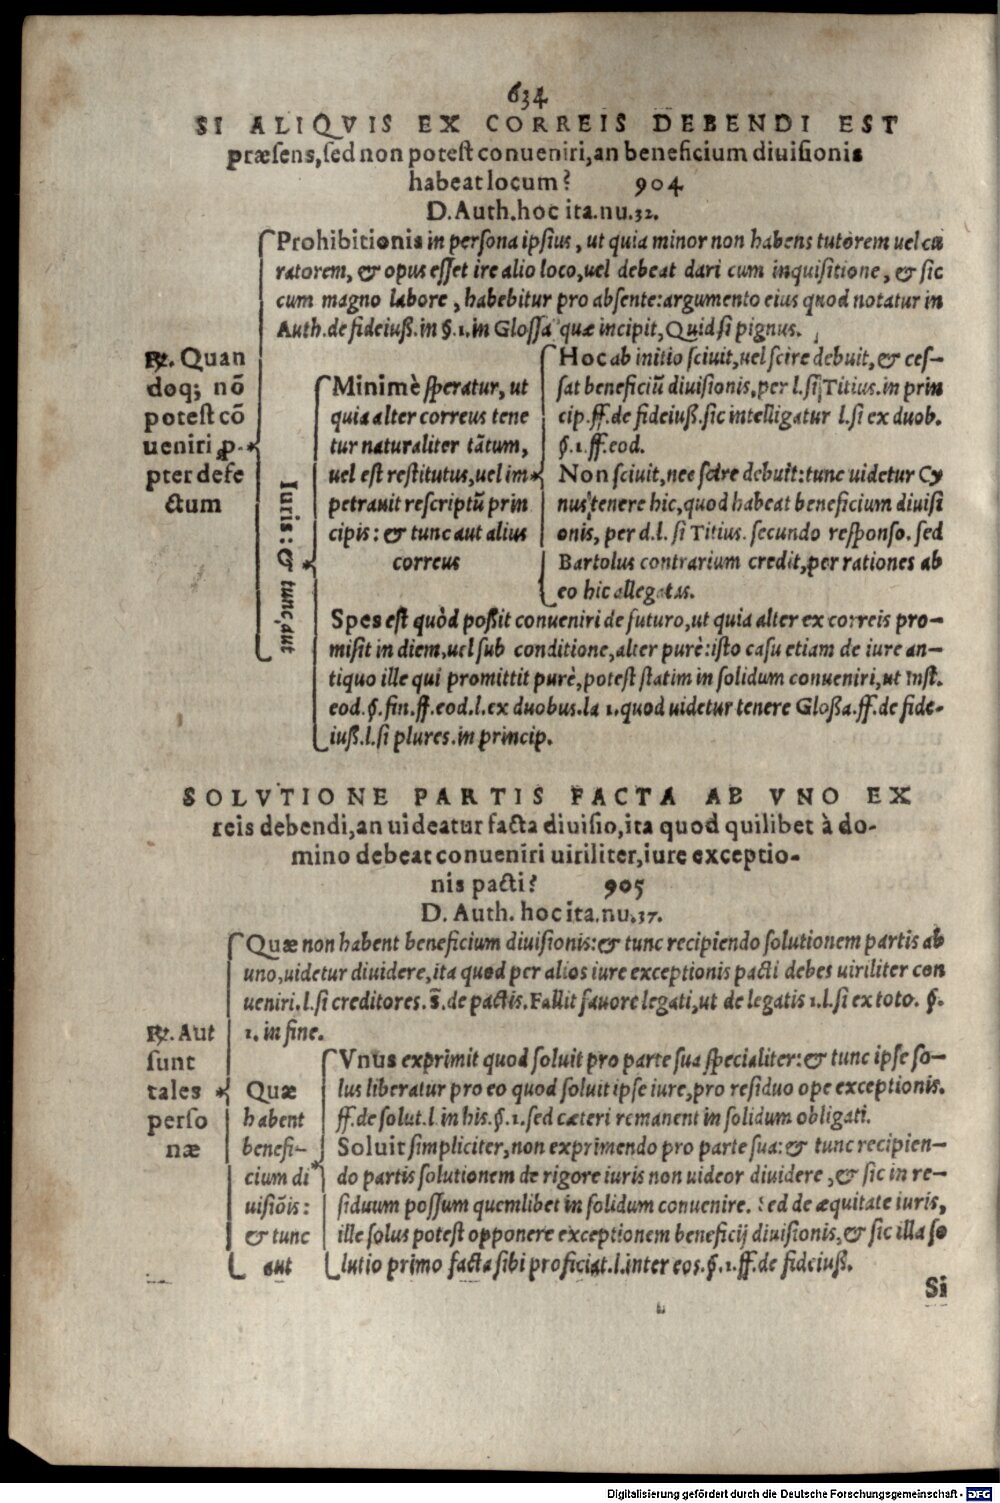 634
SI ALIQVIS EX CORREIS DEBENDI EST
præsens, sed non potest conueniri, an beneficium diuisionis
habeat locum? 904
D. Auth. hoc ita. nu. 32.
℞. Quan
doq; nō
potest cō
ueniri ꝓ-
pter defe
ctum
Prohibitionis in persona ipsius, ut quia minor non habens tutorem uel cu
ratorem, & opus esset ire alio loco, uel debeat dari cum inquisitione, & sic
cum magno labore, habebitur pro absente: argumento eius quod notatur in
Auth. de fideiuß. in §. 1. in Glossa quæ incipit, Quid si pignus.
Iuris: & tunc, aut
Minimè speratur, ut
quia alter correus tene
tur naturaliter tātum,
uel est restitutus, uel im-
petrauit rescriptū prin
cipis: & tunc aut alius
correus
Hoc ab initio sciuit, uel scire debuit, & ces-
sat beneficiū diuisionis, per l. si Titius. in prin
cip. ff. de fideiuß. sic intelligatur l. si ex duob.
§. 1. ff. eod.
Non sciuit, nec scire debuit: tunc uidetur Cy
nus tenere hic, quod habeat beneficium diuisi
onis, per d. l. si Titius. secundo responso. sed
Bartolus contrarium credit, per rationes ab
eo hic allegatas.
Spes est quòd poßit conueniri de futuro, ut quia alter ex correis pro-
misit in diem, uel sub conditione, alter purè: isto casu etiam de iure an-
tiquo ille qui promittit purè, potest statim in solidum conueniri, ut Inst.
eod. §. fin. ff. eod. l. ex duobus. la 1. quod uidetur tenere Gloßa. ff. de fide-
iuß. l. si plures. in princip.
SOLVTIONE PARTIS FACTA AB VNO EX
reis debendi, an uideatur facta diuisio, ita quod quilibet à do-
mino debeat conueniri uiriliter, iure exceptio-
nis pacti? 905
D. Auth. hoc ita. nu. 37.
℞. Aut
sunt
tales
perso
næ
Quæ non habent beneficium diuisionis: & tunc recipiendo solutionem partis ab
uno, uidetur diuidere, ita quod per alios iure exceptionis pacti debes uiriliter con
ueniri. l. si creditores. s̄. de pactis. Fallit fauore legati, ut de legatis 1. l. si ex toto. §.
1. in fine.
Quæ
habent
benefi-
cium di
uisiōis:
& tunc
aut
Vnus exprimit quod soluit pro parte sua specialiter: & tunc ipse so-
lus liberatur pro eo quod soluit ipse iure, pro residuo ope exceptionis.
ff. de solut. l. in his. §. 1. sed cæteri remanent in solidum obligati.
Soluit simpliciter, non exprimendo pro parte sua: & tunc recipien-
do partis solutionem de rigore iuris non uideor diuidere, & sic in re-
siduum possum quemlibet in solidum conuenire. Sed de æquitate iuris,
ille solus potest opponere exceptionem beneficij diuisionis, & sic illa so
lutio primo facta sibi proficiat. l. inter eos. §. 1. ff. de fideiuß.
Si
Digitalisierung gefördert durch die Deutsche Forschungsgemeinschaft - DFG